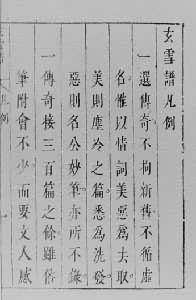 玄雪譜凡例
一選傳奇不拘新舊不循虛
名惟以情詞美惡為去取
美則塵冷之篇悉為洗發
惡則名公妙筆亦所不錄
一傳奇接三百篇之餘雖俗
筆附會不少而要文人感
凡例